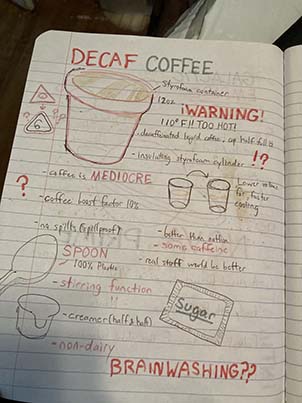 DECAF COFFEE
Styrofoam container
12oz
¡WARNING!
110°F!! TOO HOT!
6
- decaffeinated liquid coffee, cup half full
- insulating styrofoam cylinder !?
- coffee is MEDIOCRE
?
Lower volume
for faster
cooling
- coffee boost factor 10%
- no spills (spillproof)
- better than nothin
- some caffeine
SPOON
100% Plastic
- real stuff would be better
- stirring function
!!
Sugar
- creamer (half & half)
- non-dairy
BRAINWASHING??